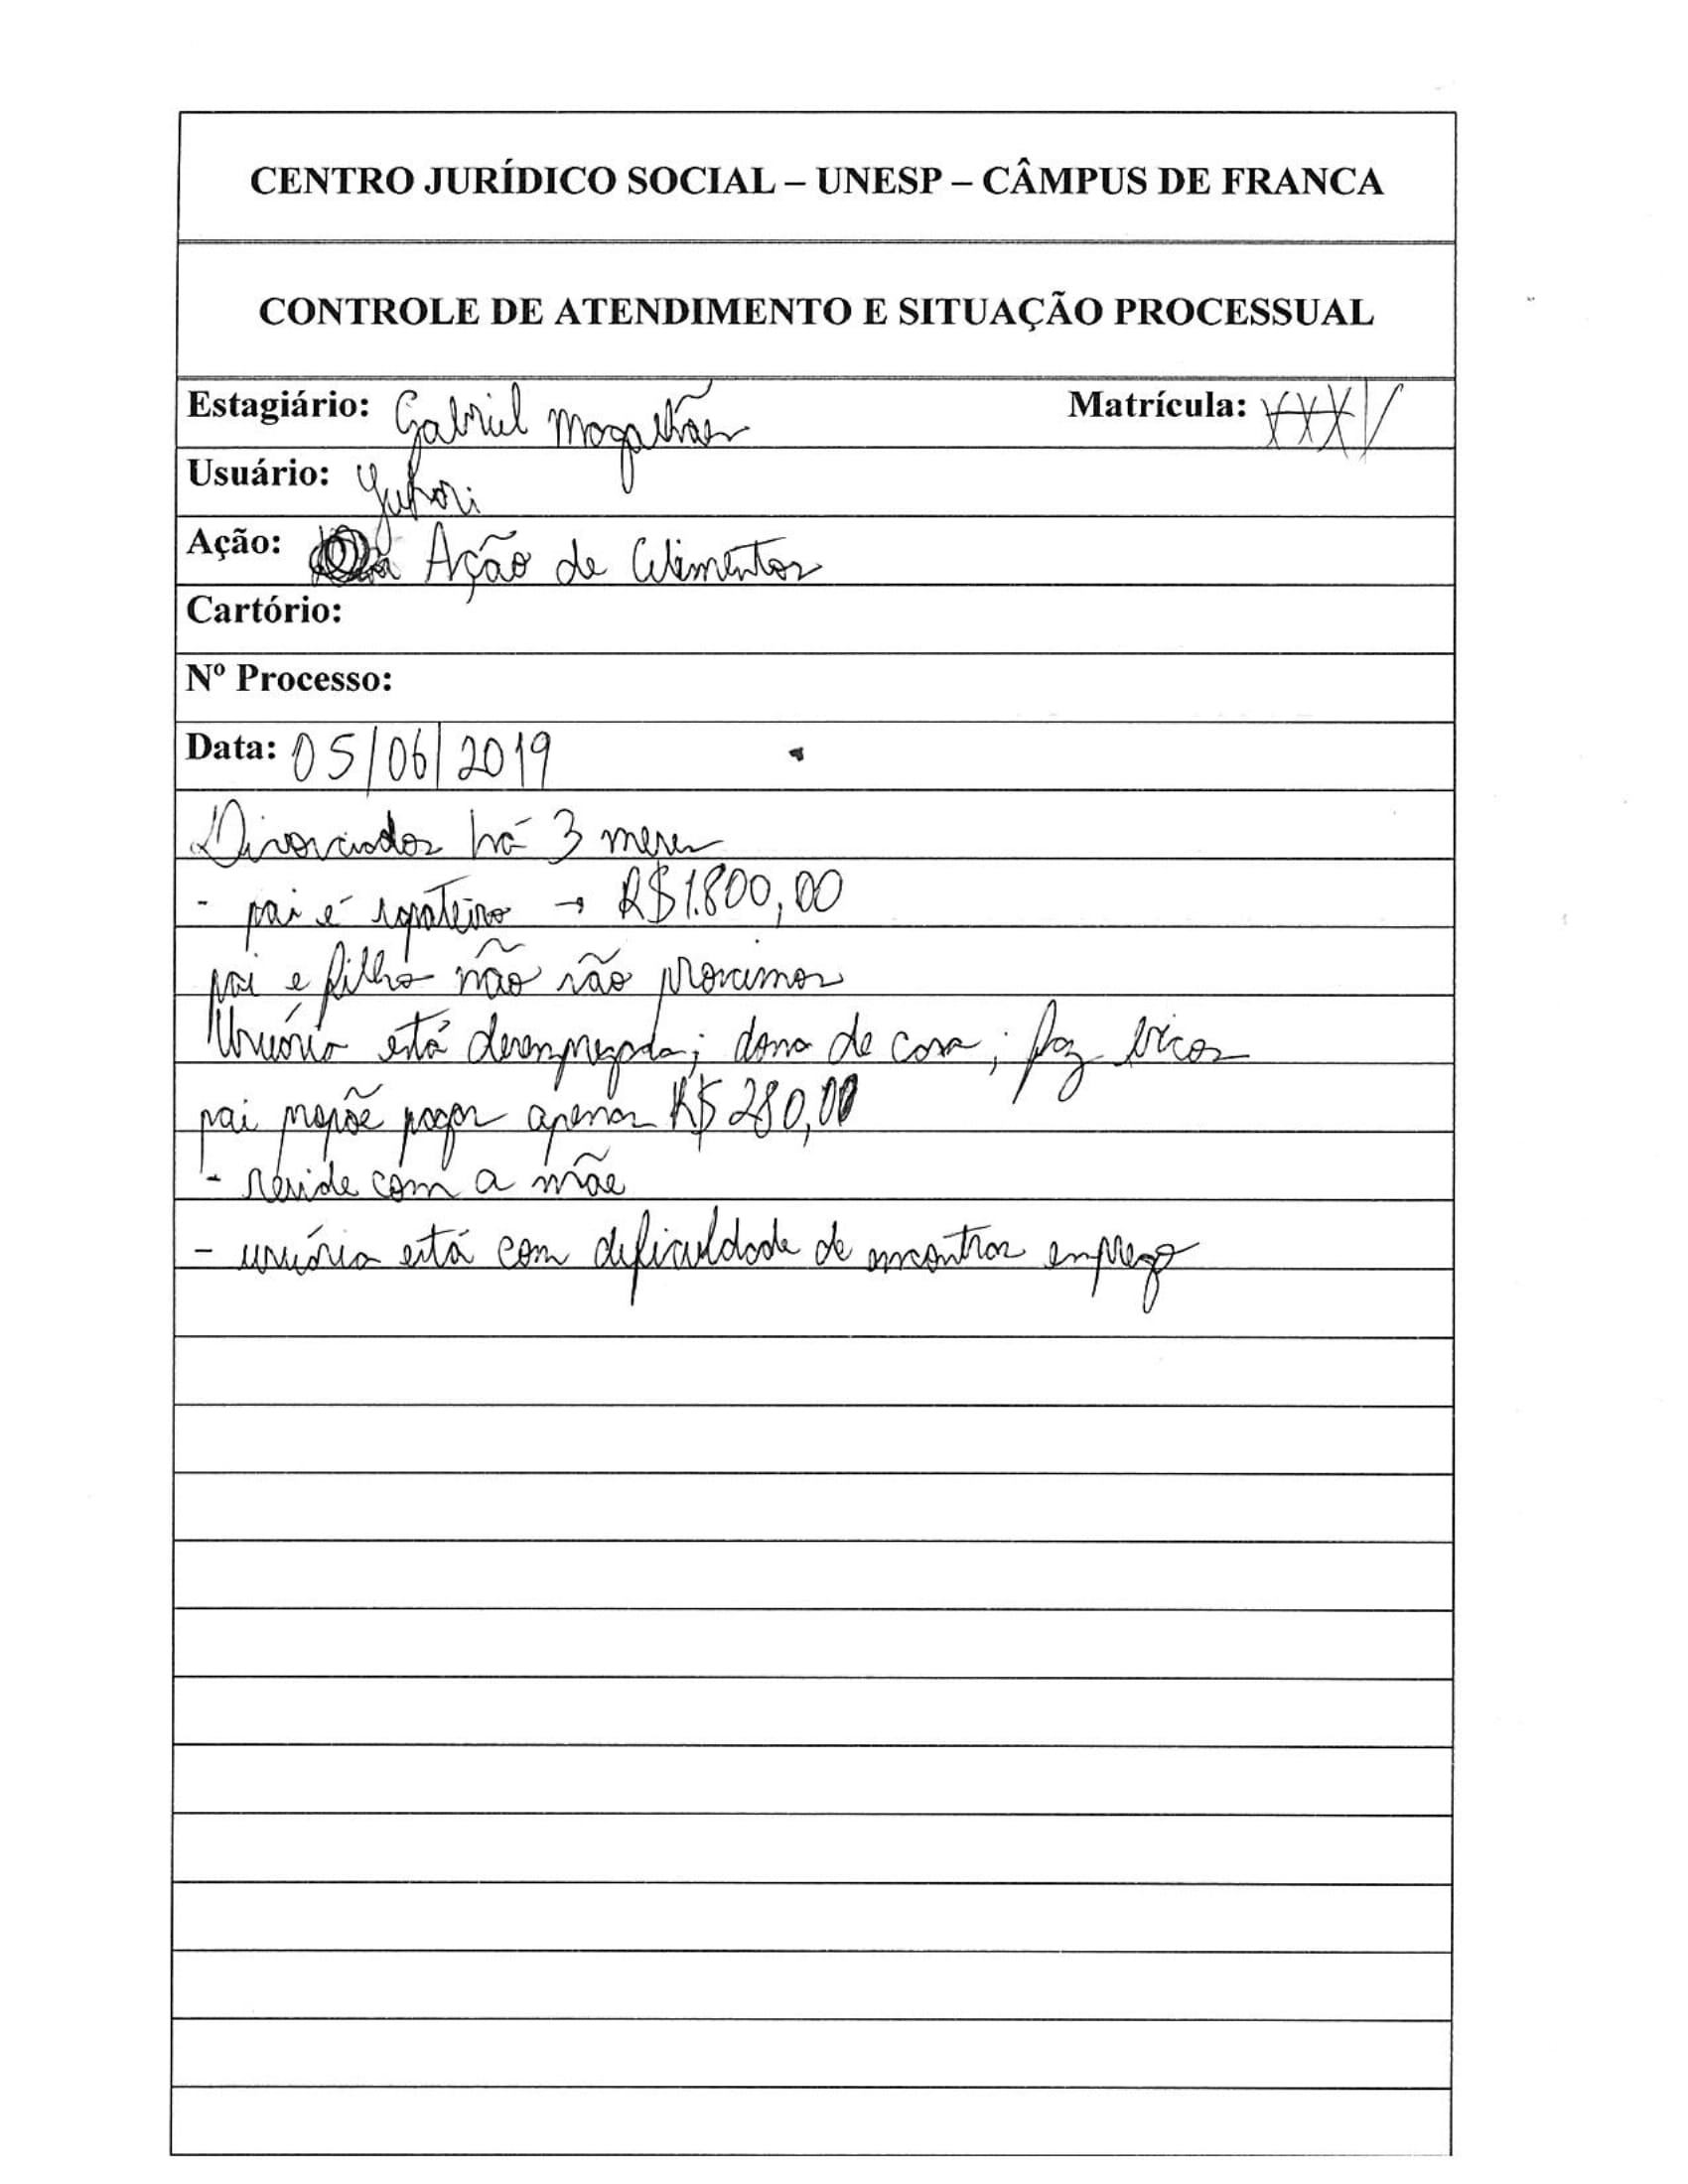 CENTRO JURÍDICO SOCIAL – UNESP – CÂMPUS DE FRANCA
CONTROLE DE ATENDIMENTO E SITUAÇÃO PROCESSUAL
Estagiário: Gabriel Magalhães Matrícula:
Usuário: Yukari
Ação: Ação de Alimentos
Cartório:
Nº Processo:
Data: 05/06/2019
Divorciados há 3 meses
- pai é sapateiro → R$1.800,00
pai e filho não são proximos
Usuária está desempregada; dona de casa; faz bicos
pai propõe pagar apenas R$ 280,00
- reside com a mãe
- usuária está com dificuldade de encontrar emprego